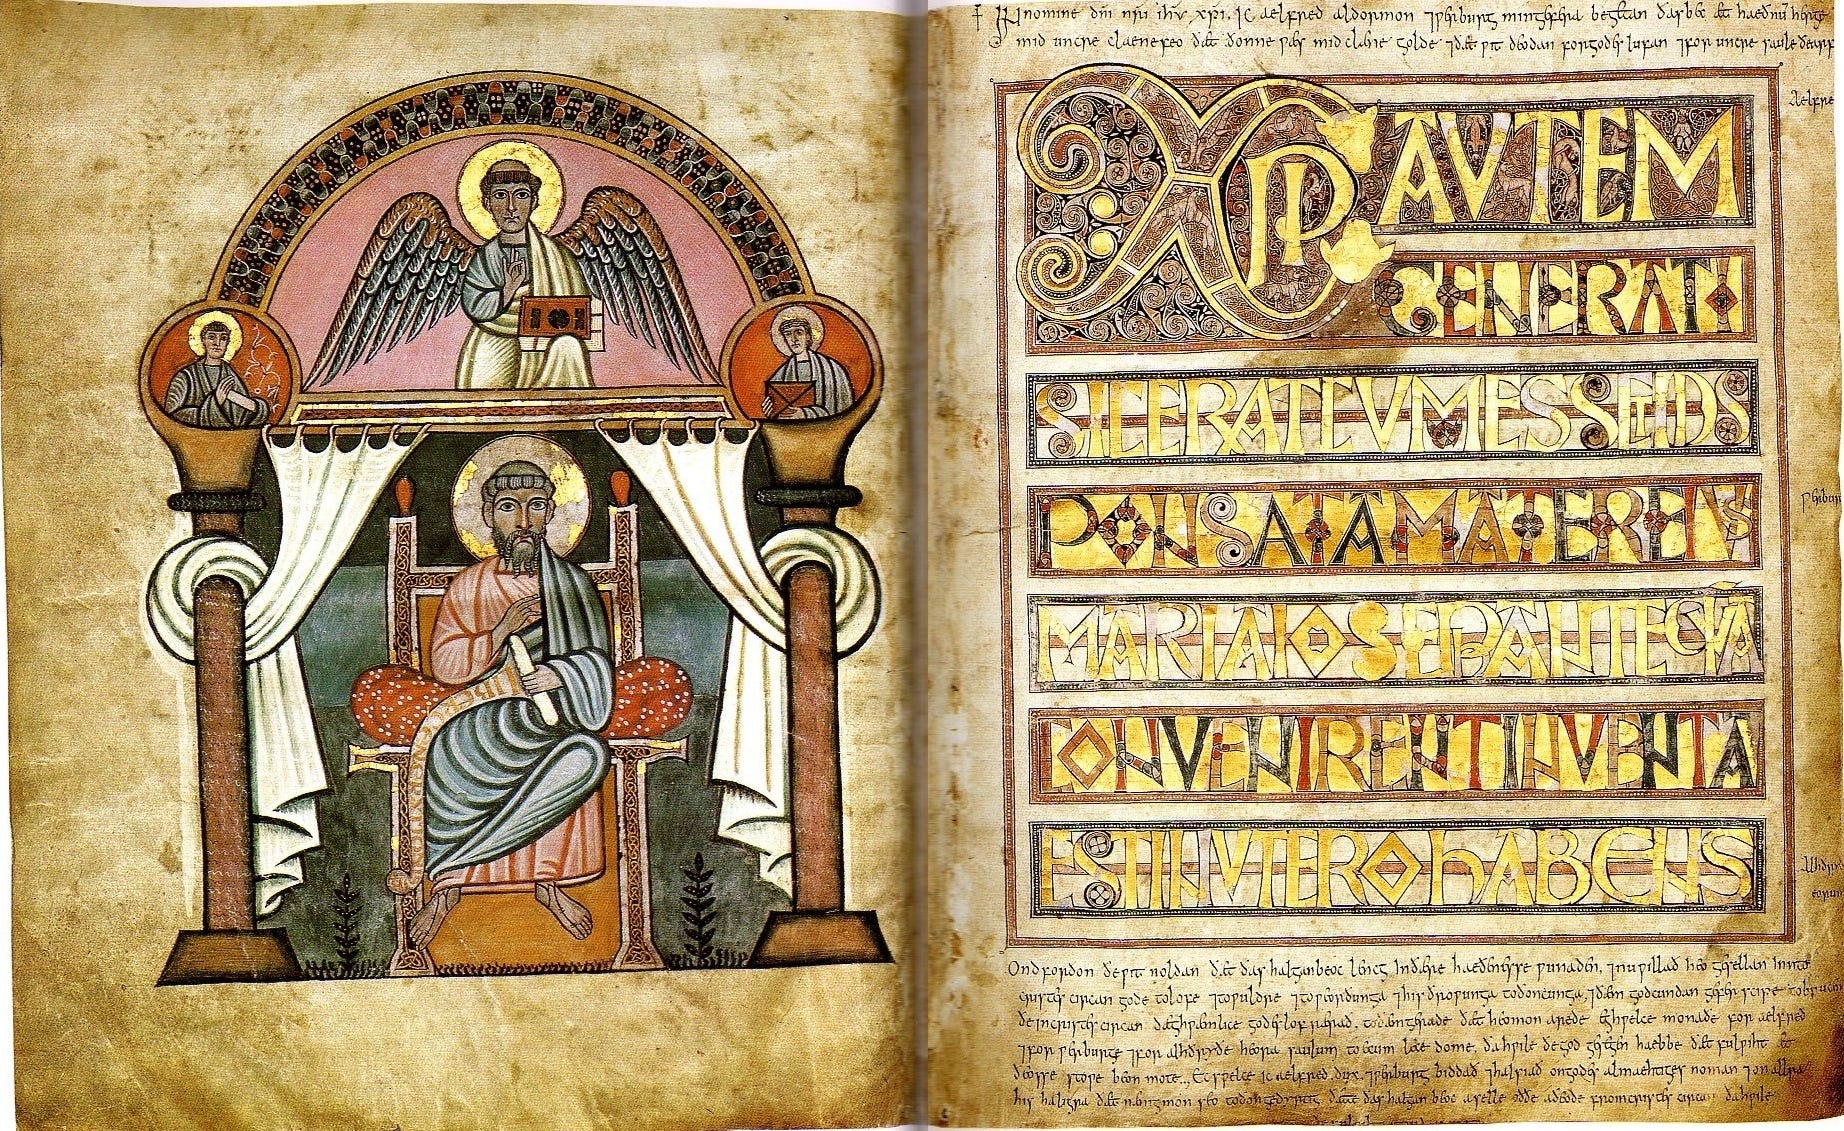 + In nomine dni nri ihu xpi. Ic aelfred aldormon ⁊ ƿerburg min gefera begetan ðas bec æt haeðnum herge
mid uncre claene feo ðæt ðonne ƿæs mid claene golde ⁊ ðæt ƿit deodan for godes lufan ⁊ for uncre saule ðearfe
XPI AVTEM
GENERATI
SIC ERAT CVM ESSET DIS
PONSATA MATER EIVS
MARIA IOSEPH ANTEQVA
CONVENIRENT INVENTA
EST IN VTERO HABENS
Aelfre
ƿerbur
Ond forðon ðe ƿit noldan ðæt ðas halgan beoc lencg in ðære haeðenesse ƿunaden, ⁊ nu ƿillað heo gesellan inn to
cristes circan gode to lofe ⁊ to ƿuldre ⁊ to ƿeorðunga ⁊ his ðroƿunga to ðoncunga, ⁊ ðæm godcundan geferscipe to brucen
ðe in cristes circan dæghƿæmlice godes lof rærað, to ðæm gerade ðæt heo mon arede eghƿelce monaðe for aelfred
⁊ for ƿerburge ⁊ for alhðryðe heora saulum to ecum lecedome, ða hƿile ðe god gesegen haebbe ðæt fulƿiht æt
ðeosse stoƿe beon mote. Ec sƿelce ic aelfred dux ⁊ ƿerburg biddað ⁊ halsiað on godes almaehtiges noman ⁊ on allra
his haligra ðæt nænig mon seo to ðon gedyrstig ðætte ðas halgan beoc aselle oððe aðeode from cristes circan ða hƿile
LIBER